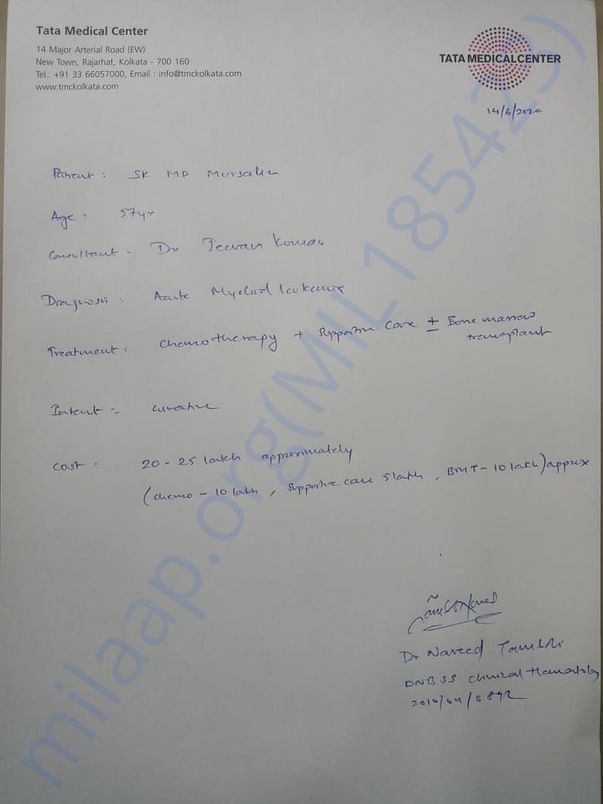 Tata Medical Center
14 Major Arterial Road (EW)
New Town, Rajarhat, Kolkata - 700 160
Tel.: +91 33 66057000, Email : info@tmckolkata.com
www.tmckolkata.com
TATA MEDICAL CENTER
14/6/2020
Patient : SK MD Mursalin
Age : 57yr
Consultant : Dr Jeevan Kumar
Diagnosis : Acute Myeloid leukemia
Treatment : chemotherapy + supportive care ± Bone marrow
transplant
Intent :- curative
Cost : 20 - 25 lakh approximately
(chemo - 10 lakh , supportive care 5 lakh , BMT - 10 lakh) approx
Dr Naveed
DNB SS clinical Hematology
milaap.org(MIL185423)